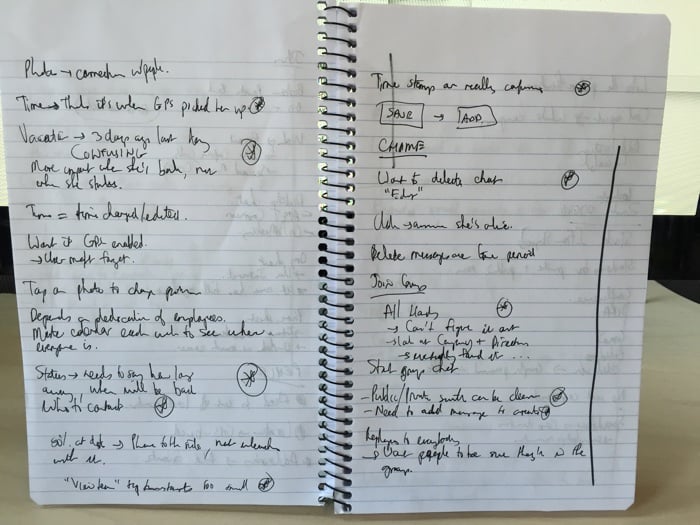 Photo → connection w/people.
Time → Thinks it's when GPS picked her up
Vacation → 3 days ago last
CONFUSING
More important when she's back, not
when she started.
Time = time changed/edited.
Want it GPS enabled.
→ User might forget.
Tap on photo to change
Depends on dedication of employees.
Make calendar each week to see where
everyone is.
Status → needs to say how long
away, when will be back
Who to contact
80% at desk → Phone to the side, not
with it.
"View team" too small
Time stamps are really confusing
SAVE → ADD
CHANGE
Want to delete chat
"Edit"
assume she's
Delete messages over time period
Join Group
All Hands
→ Can't figure it out
→ Look at Company + Directory
→ eventually found it ...
Start group chat
- Public/Private switch can be clearer
- Need to add message to create
Replying to everybody
→ Want people to see one thing in the
group.